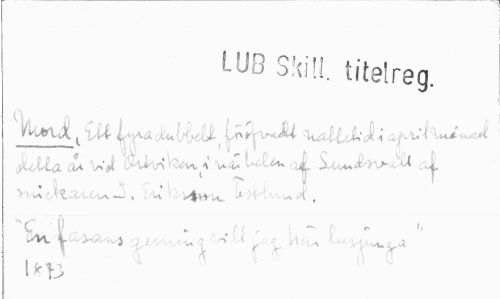 LUB Skill. titelreg.
Mord, Ett fyradubbelt, föröfvadt nattetid i april månad
detta år vid Ortviken, i närheten af Sundsvall af
snickaren J. Eriksson Östlund.
"En fasans gerning vill jag här besjunga"
1873